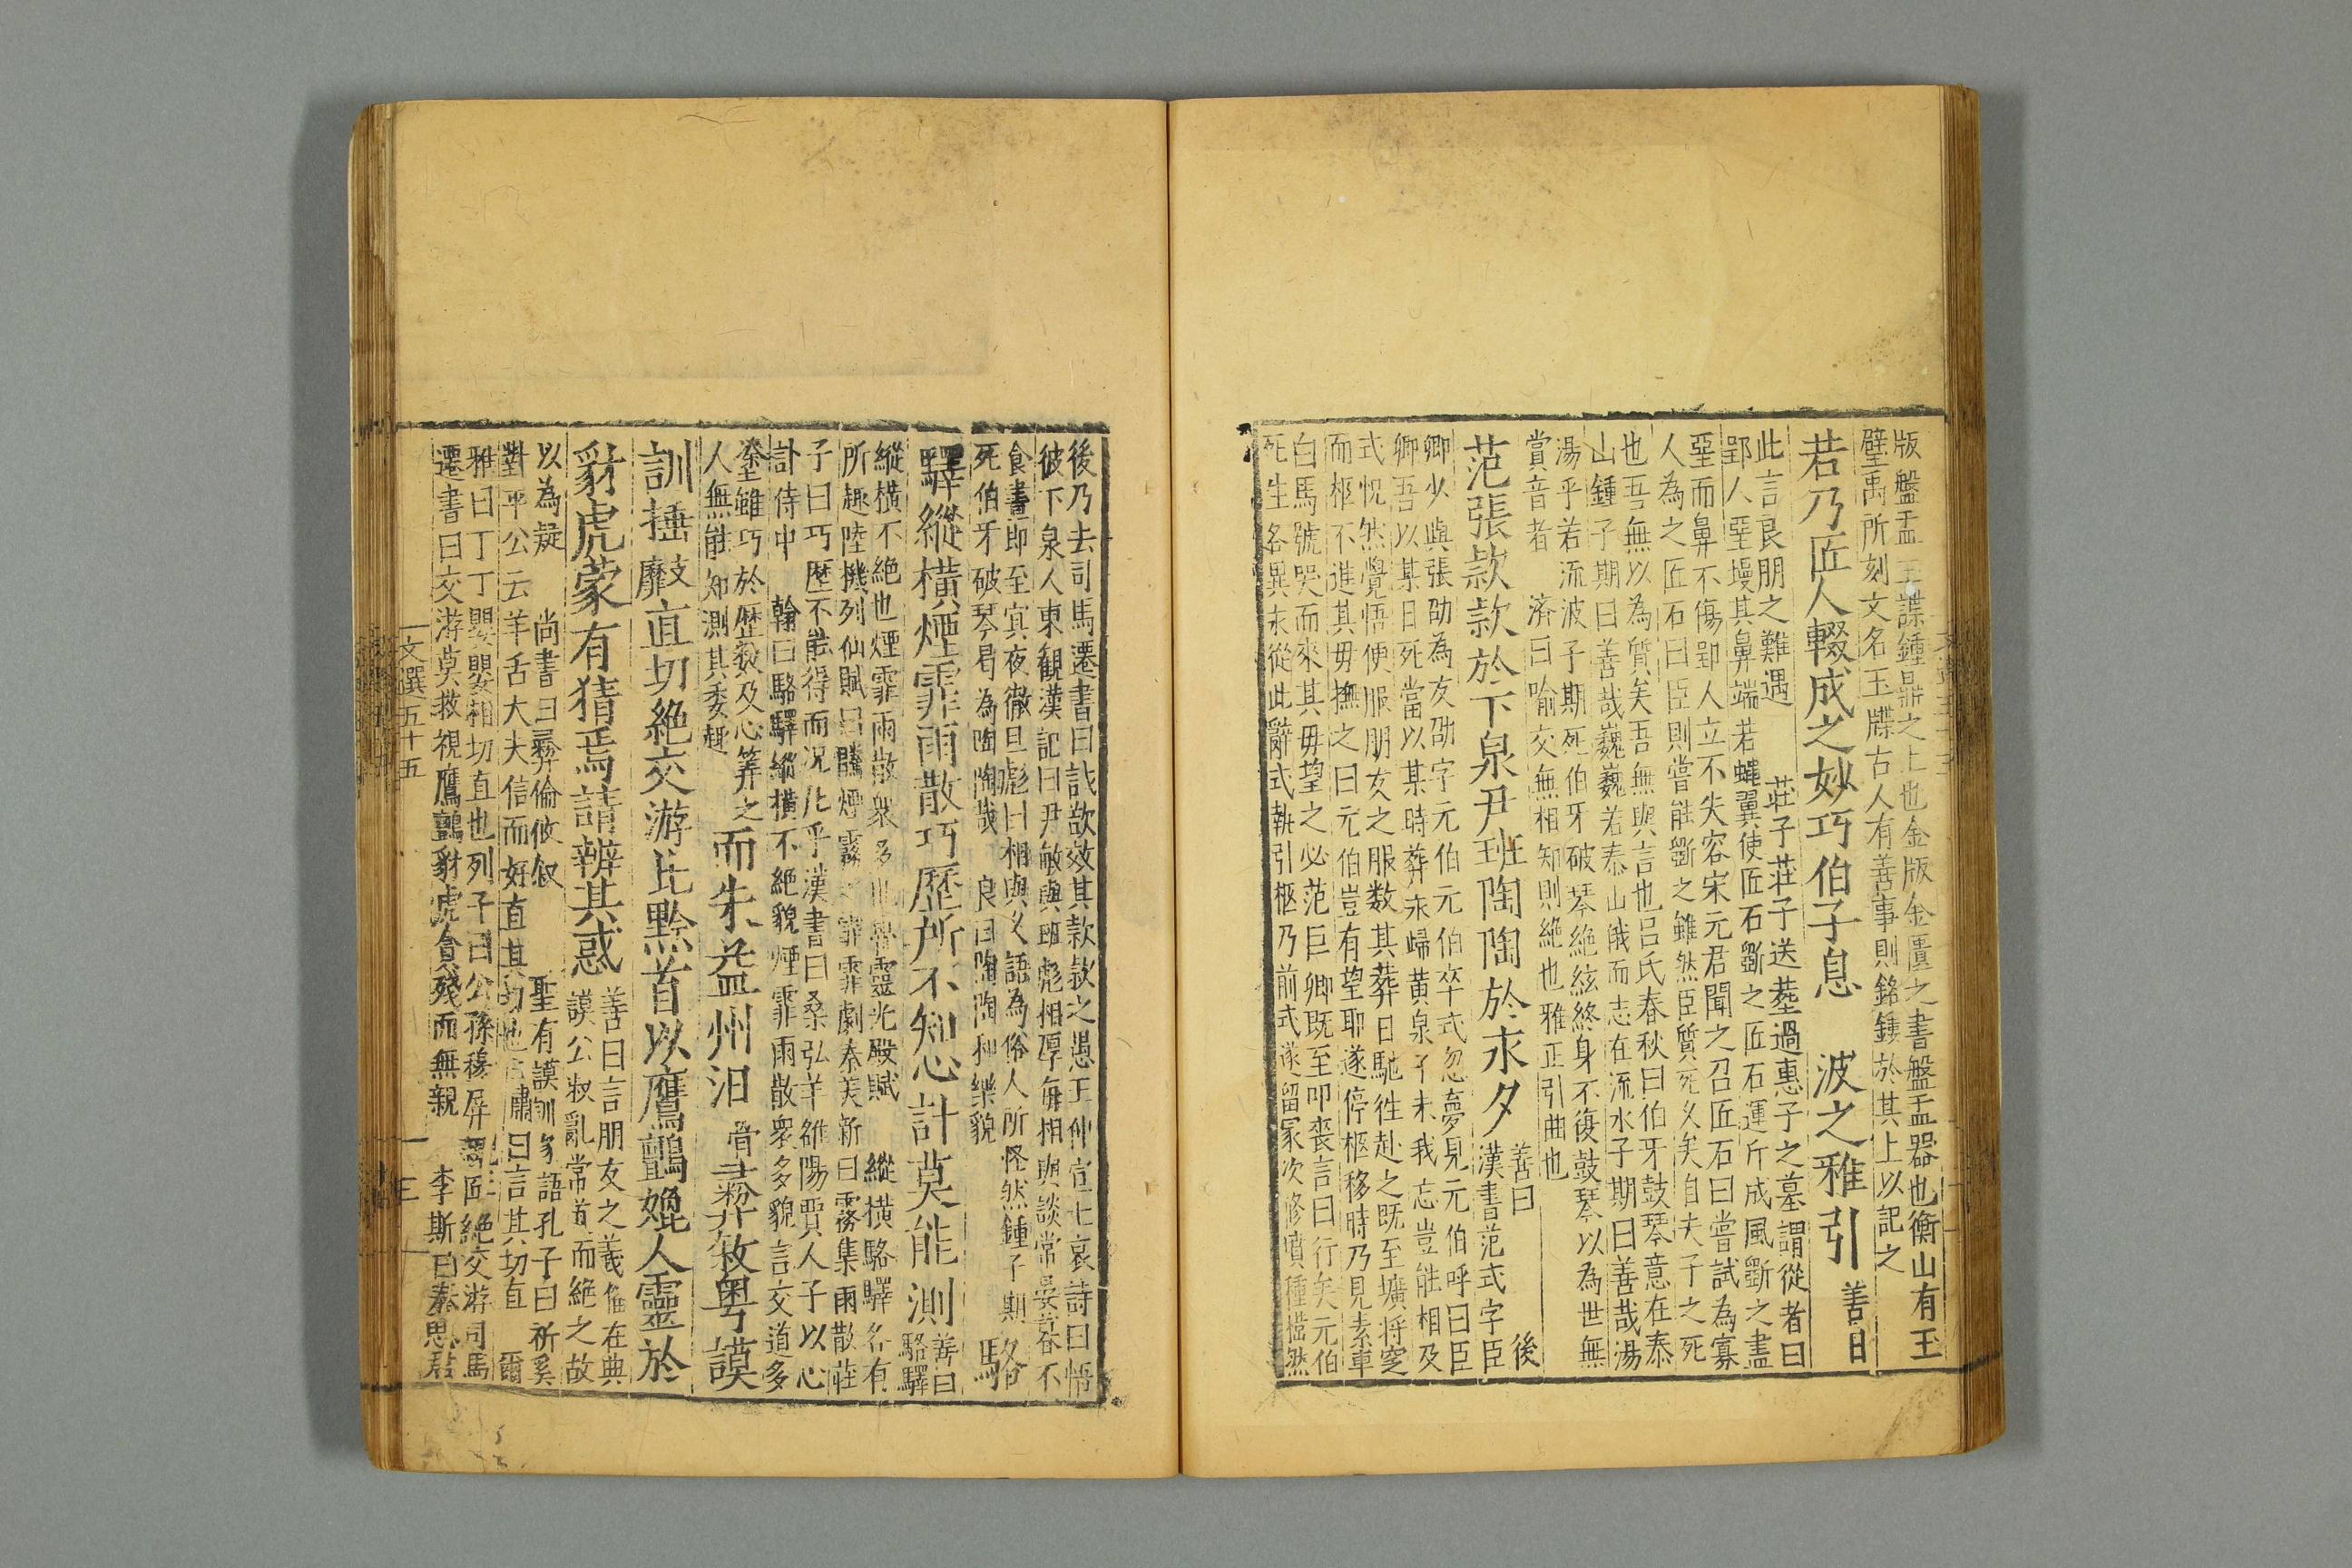 版盤盂玉諜鍾鼎之上也金版金匱之書盤盂器也衡山有玉
壁禹所刻文名玉牒古人有善事則銘鍾於其上以記之
若乃匠人輟成之妙巧伯子息波之雅引善曰
此言良朋之難遇莊子莊子送葬過惠子之墓謂從者曰
郢人堊墁其鼻端若蠅翼使匠石斲之匠石運斤成風斲之盡
堊而鼻不傷郢人立不失容宋元君聞之召匠石曰嘗試為寡
人為之匠石曰臣則嘗能斲之雖然臣質死久矣自夫子之死
也吾無以為質矣吾無與言也呂氏春秋曰伯牙鼓琴意在泰
山鍾子期曰善哉巍巍若泰山俄而志在流水子期曰善哉湯
湯乎若流波子期死伯牙破琴絶絃終身不復鼓琴以為世無
賞音者濟曰喻交無相知則絶也雅正引曲也
范張款款於下泉尹班陶陶於永夕善曰後
漢書范式字臣
卿少與張劭為友劭字元伯元伯卒式忽夢見元伯呼曰臣
卿吾以某日死當以某時葬永歸黃泉子未我忘豈能相及
式怳然覺悟便服朋友之服数其葬日馳徃赴之既至壙將窆
而柩不進其毋撫之曰元伯豈有望耶遂停柩移時乃見素車
白馬號哭而來其毋望之必范巨卿既至叩喪言曰行矣元伯
死生各異永從此辭式執引柩乃前式遂留冢次修墳種檔然
後乃去司馬遷書曰誠欲效其款款之愚王仲宣七哀詩曰悟
彼下泉人東觀漢記曰尹敏與班彪相厚每相與談常晏暮不
食晝即至㝠夜徹旦彪曰相與久語為俗人所怪然鍾子期
死伯牙破琴曷為陶陶哉良曰陶陶和樂貌駱
驛縱橫煙霏雨散巧歷所不知心計莫能測善曰
駱驛
縱横不絶也煙霏雨散衆多也魯靈光殿賦縱橫駱驛各有
所趣陸機列仙賦曰騰煙霧之霏霏劇秦美新曰霧集雨散莊
子曰巧歷不能得而况凡乎漢書曰桑弘羊雒陽賈人子以心
計侍中翰曰駱驛縱橫不絶貌煙霏雨散衆多貌言交道多
塗雖巧於歷数及心筭之
人無能知測其委趣而朱益州汨彛敘粵謨
訓捶直切絶交游比黔首以鷹鸇媲人靈於
豺虎蒙有猜焉請辨其惑善曰言朋友之義備在典
謨公叔亂常首而絶之故
以為疑尚書曰彛倫攸叙聖有謨訓家語孔子曰祈奚
對平公云羊舌大夫信而好直其切也王肅曰言其切直爾
雅曰丁丁嚶嚶相切直也列子曰公孫穆屏親匠絶交游司馬
遷書曰交游莫救視鷹鸇豺虎貪殘而無親李斯曰秦思若
文選五十五
三